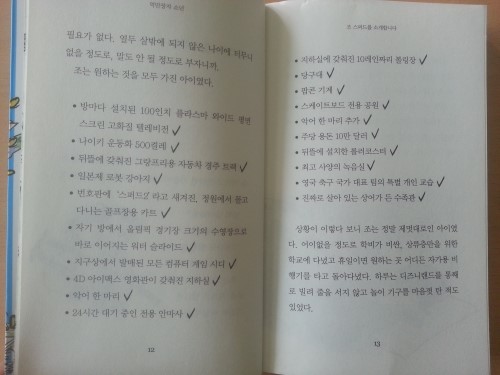 억만장자 소년
필요가 없다. 열두 살밖에 되지 않은 나이에 터무니
없을 정도로, 말도 안 될 정도로 부자니까.
조는 원하는 것을 모두 가진 아이였다.
• 방마다 설치된 100인치 플라스마 와이드 평면
스크린 고화질 텔레비전 ✓
• 나이키 운동화 500켤레 ✓
• 뒤뜰에 갖춰진 그랑프리용 자동차 경주 트랙 ✓
• 일본제 로봇 강아지 ✓
• 번호판에 '스퍼드2'라고 새겨진, 정원에서 몰고
다니는 골프장용 카트 ✓
• 자기 방에서 올림픽 경기장 크기의 수영장으로
바로 이어지는 워터 슬라이드 ✓
• 지구상에서 발매된 모든 컴퓨터 게임 시디 ✓
• 4D 아이맥스 영화관이 갖춰진 지하실 ✓
• 악어 한 마리 ✓
• 24시간 대기 중인 전용 안마사 ✓
12
조 스퍼드를 소개합니다
• 지하실에 갖춰진 10레인짜리 볼링장 ✓
• 당구대 ✓
• 팝콘 기계 ✓
• 스케이트보드 전용 공원 ✓
• 악어 한 마리 추가 ✓
• 주당 용돈 10만 달러 ✓
• 뒤뜰에 설치한 롤러코스터 ✓
• 최고 사양의 녹음실 ✓
• 영국 축구 국가 대표 팀의 특별 개인 교습 ✓
• 진짜로 살아 있는 상어가 든 수족관 ✓
상황이 이렇다 보니 조는 정말 제멋대로인 아이였
다. 어이없을 정도로 학비가 비싼, 상류층만을 위한
학교에 다녔고 휴일이면 원하는 곳 어디든 자가용 비
행기를 타고 돌아다녔다. 하루는 디즈니랜드를 통째
로 빌려 줄을 서지 않고 놀이 기구를 마음껏 탄 적도
있었다.
13